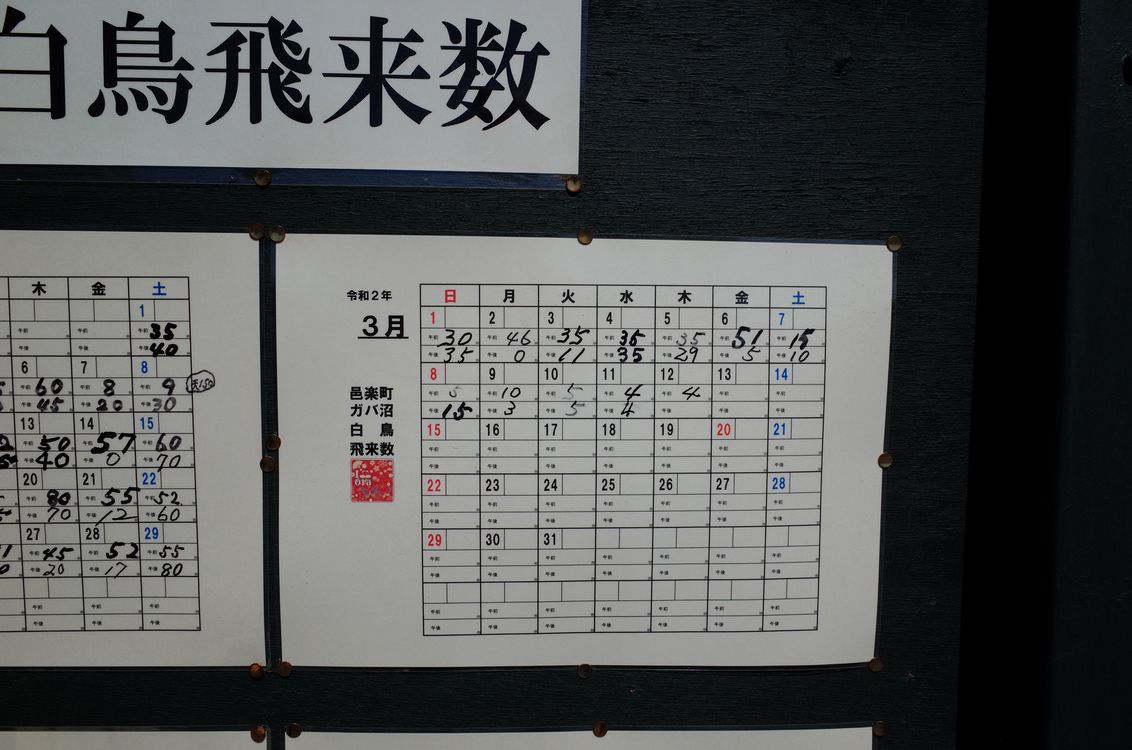 白鳥飛来数
木 金 土
1
午前 午前 午前 35
午後 午後 午後 40
6 7 8
午前 60 午前 8 午前 9
午後 45 午後 20 午後 30
13 14 15
午前 50 午前 57 午前 60
午後 40 午後 0 午後 70
20 21 22
午前 80 午前 55 午前 52
午後 70 午後 12 午後 60
27 28 29
午前 45 午前 52 午前 55
午後 20 午後 17 午後 80
午前 午前 午前
午後 午後 午後
令和2年
3月
邑楽町
ガバ沼
白鳥
飛来数
日 月 火 水 木 金 土
1 2 3 4 5 6 7
午前 30 午前 46 午前 35 午前 36 午前 35 午前 51 午前 15
午後 35 午後 0 午後 11 午後 35 午後 29 午後 5 午後 10
8 9 10 11 12 13 14
午前 5 午前 10 午前 5 午前 4 午前 4 午前 午前
午後 15 午後 3 午後 5 午後 4 午後 午後 午後
15 16 17 18 19 20 21
午前 午前 午前 午前 午前 午前 午前
午後 午後 午後 午後 午後 午後 午後
22 23 24 25 26 27 28
午前 午前 午前 午前 午前 午前 午前
午後 午後 午後 午後 午後 午後 午後
29 30 31
午前 午前 午前 午前 午前 午前 午前
午後 午後 午後 午後 午後 午後 午後
午前 午前 午前 午前 午前 午前 午前
午後 午後 午後 午後 午後 午後 午後